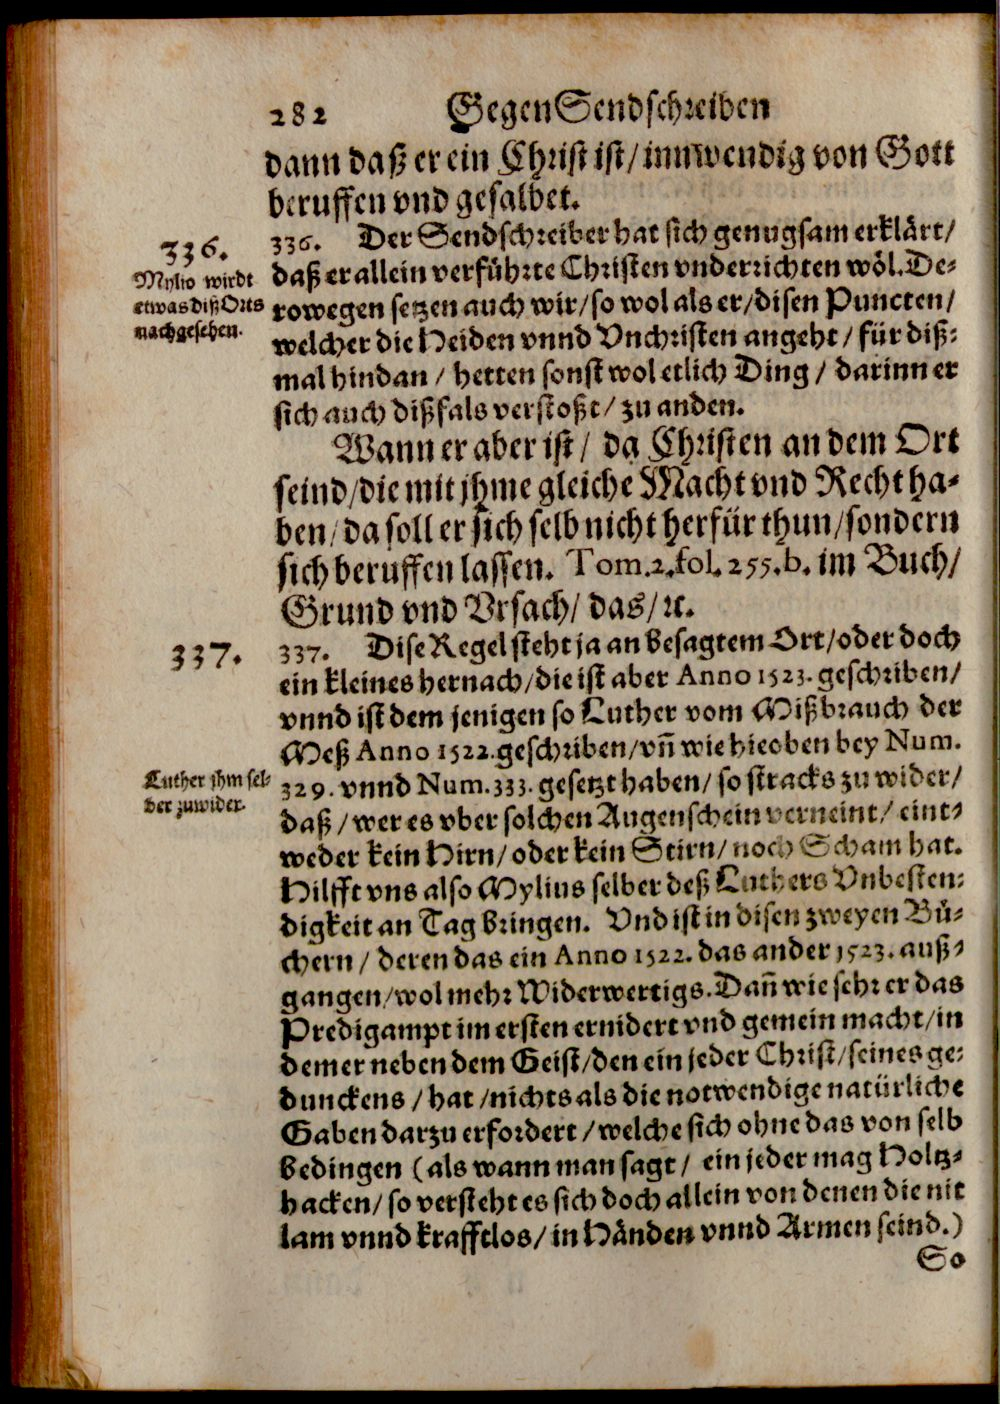 282 GegenSendschreiben
dann daß er ein Christ ist/ innwendig von Gott
beruffen vnd gesalbet.
336.
Mylio wirdt
etwas diß Orts
nachgesehen.
336. Der Sendschreiber hat sich genugsam erklärt/
daß er allein verführte Christen vnderrichten wöl. De-
rowegen setzen auch wir/ so wol als er/ disen Puncten/
welcher die Heiden vnnd Vnchristen angeht/ für diß-
mal hindan/ hetten sonst wol etlich Ding/ darinn er
sich auch dißfals verstoßt/ zu anden.
Wann er aber ist/ da Christen an dem Ort
seind/ die mit jhme gleiche Macht vnd Recht ha-
ben/ da soll er sich selb nicht herfür thun/ sondern
sich beruffen lassen. Tom.2.fol.255.b. im Buch/
Grund vnd Vrsach/ das/ ꝛc.
337.
337. Dise Regel steht ja an besagtem Ort/ oder doch
ein kleines hernach/ die ist aber Anno 1523. geschriben/
vnnd ist dem jenigen so Luther vom Mißbrauch der
Meß Anno 1522. geschriben/ vñ wie hieoben bey Num.
Luther jhm sel-
ber zuwider.
329. vnnd Num. 333. gesetzt haben/ so stracks zu wider/
daß/ wer es vber solchen Augenschein verneint/ eint-
weder kein Hirn/ oder kein Stirn/ noch Scham hat.
Hilfft vns also Mylius selber deß Luthers Vnbesten-
digkeit an Tag bringen. Vnd ist in disen zweyen Bü-
chern/ deren das ein Anno 1522. das ander 1523. auß-
gangen/ wol mehr Widerwertigs. Dañ wie sehr er das
Predigampt im ersten ernidert vnd gemein macht/ in
dem er neben dem Geist/ den ein jeder Christ/ seines ge-
dunckens/ hat/ nichts als die notwendige natürliche
Gaben darzu erfordert/ welche sich ohne das von selb
bedingen (als wann man sagt/ ein jeder mag Holtz-
hacken/ so versteht es sich doch allein von denen die nit
lam vnnd krafftlos/ in Händen vnnd Armen seind.)
So